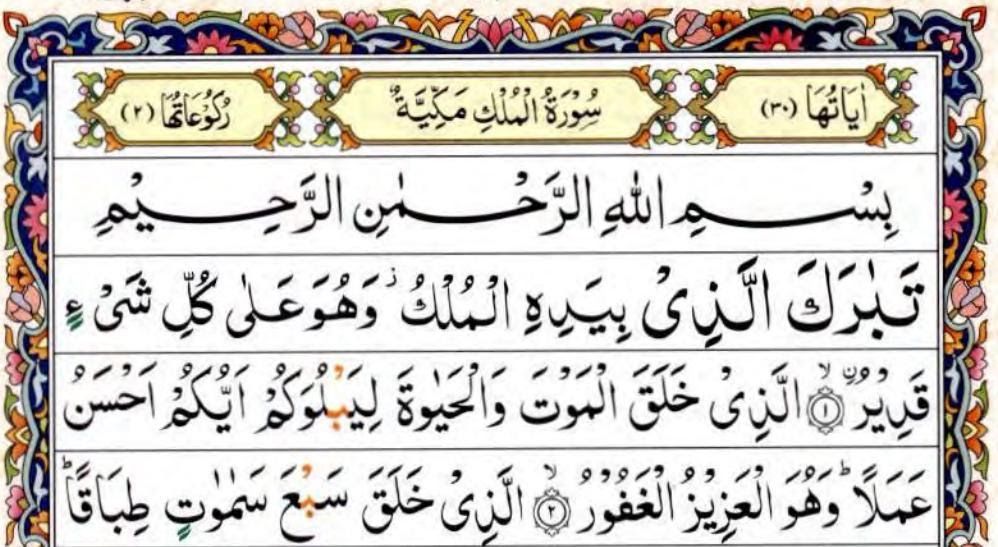 اٰيَاتُهَا (٣٠) سُوْرَةُ الْمُلْكِ مَكِّيَّةٌ رُكُوْعَاتُهَا (٢)
بِسْمِ اللهِ الرَّحْمٰنِ الرَّحِيْمِ
تَبٰرَكَ الَّذِىْ بِيَدِهِ الْمُلْكُ ز وَهُوَ عَلٰى كُلِّ شَىْءٍ
قَدِيْرُۨ ۙ ﴿١﴾ الَّذِىْ خَلَقَ الْمَوْتَ وَالْحَيٰوةَ لِيَبْلُوَكُمْ اَيُّكُمْ اَحْسَنُ
عَمَلًا ؕ وَهُوَ الْعَزِيْزُ الْغَفُوْرُ ۙ ﴿٢﴾ الَّذِىْ خَلَقَ سَبْعَ سَمٰوٰتٍ طِبَاقًا ؕ